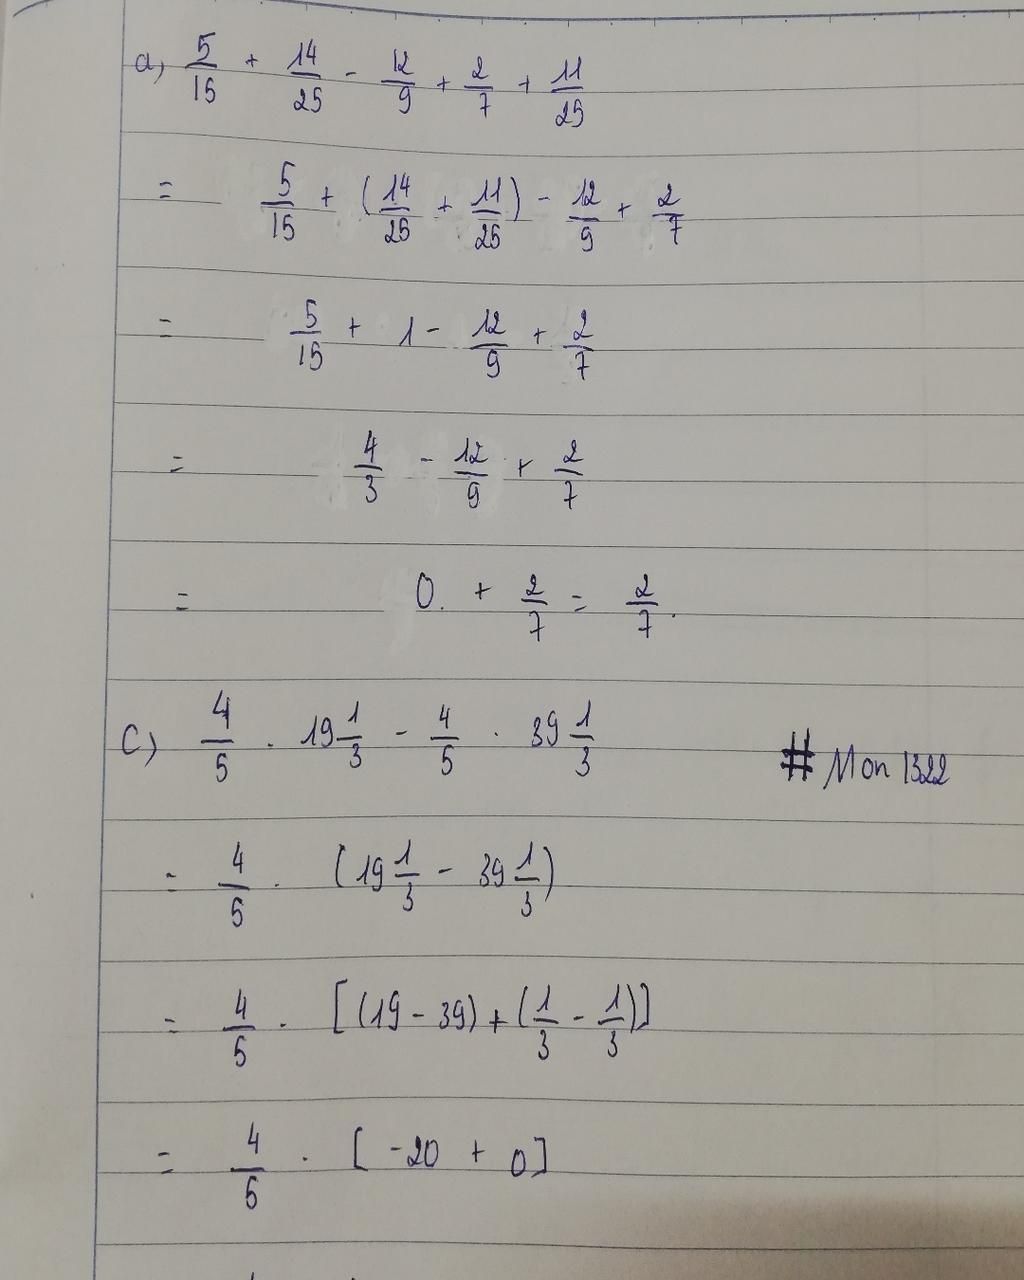 a) 5/15 + 14/25 - 12/9 + 2/7 + 11/25
= 5/15 + (14/25 + 11/25) - 12/9 + 2/7
= 5/15 + 1 - 12/9 + 2/7
= 4/3 - 12/9 + 2/7
= 0. + 2/7 = 2/7.
C) 4/5 . 19 1/3 - 4/5 . 39 1/3
# Mon 1322
= 4/5 . (19 1/3 - 39 1/3)
= 4/5 . [(19 - 39) + (1/3 - 1/3)]
= 4/5 . [-20 + 0]